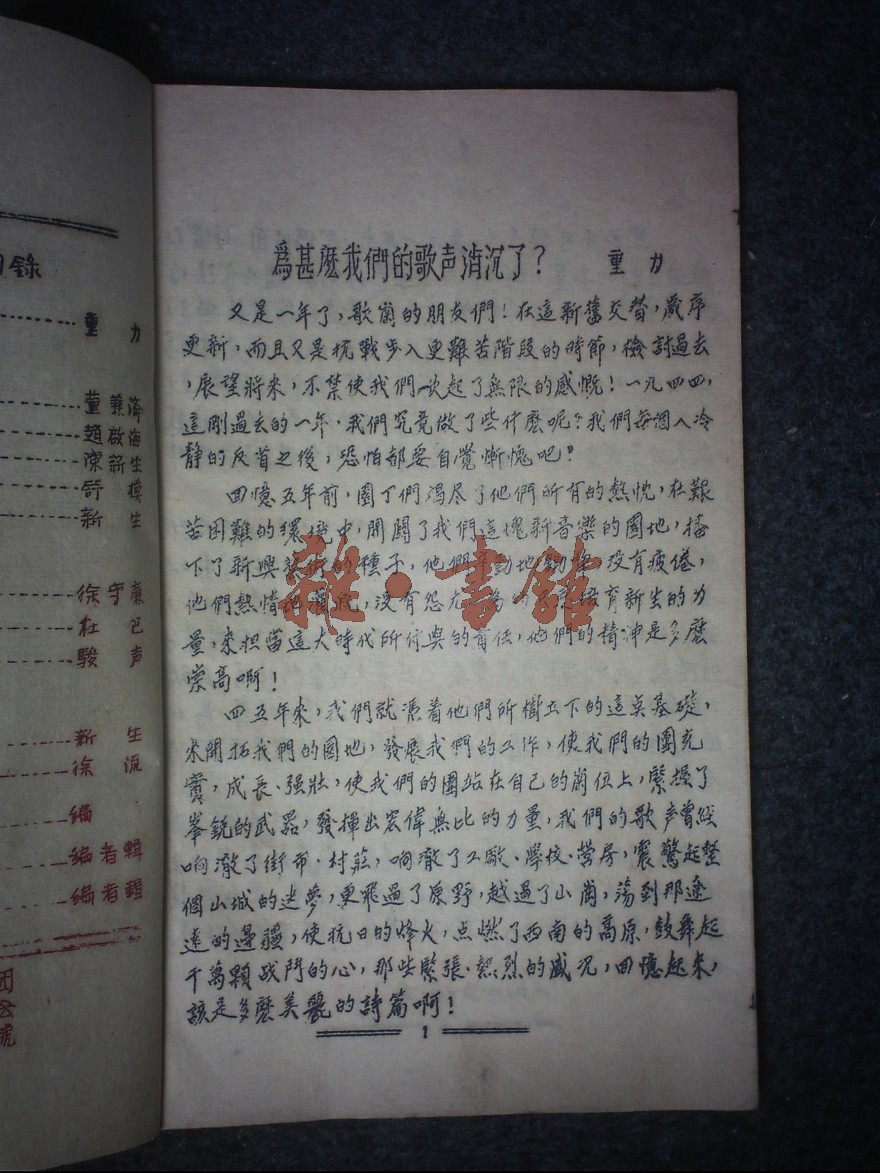 錄
重力
董兼濟
趙啟海
陳新生
舒模
新生
徐守廉
杜巴
駿声
新生
徐流
編
編者輯
編者輯
為甚麼我們的歌声消沉了？ 重力
又是一年了，歌崗的朋友們！在這新舊交替，歲序
更新，而且又是抗戰步入更艱苦階段的時節，檢討過去
，展望將來，不禁使我們欣起了無限的感慨！一九四四，
這剛過去的一年，我們究竟做了些什麼呢？我們每個人冷
靜的反省之後，恐怕都要自覺慚愧吧？
回憶五年前，園丁們竭尽了他們所有的熱忱，在艱
苦困難的環境中，開闢了我們這塊新音樂的園地，播
下了新興的種子，他們勤地，沒有疲倦，
他們熱情地，沒有怨尤，培育新生的力
量，來担當這大時代所付與的責任，他們的精神是多麼
崇高啊！
四五年來，我們就憑着他們所樹立下的這奠基礎，
來開拓我們的園地，發展我們的工作，使我們的團充
實，成長、强壯，使我們的團站在自己的崗位上，緊握了
鋭的武器，發揮出宏偉無比的力量，我們的歌声曾經
响澈了街市、村莊，响澈了工廠、學校、營房，震驚起整
個山城的迷夢，更飛過了原野，越過了山崗，蕩到那遼
遠的邊疆，使抗日的烽火，点燃了西南的高原，鼓舞起
千萬顆战鬥的心，那些緊張、熱烈的盛况，回憶起來，
該是多麼美麗的詩篇啊！
1
雜·書館